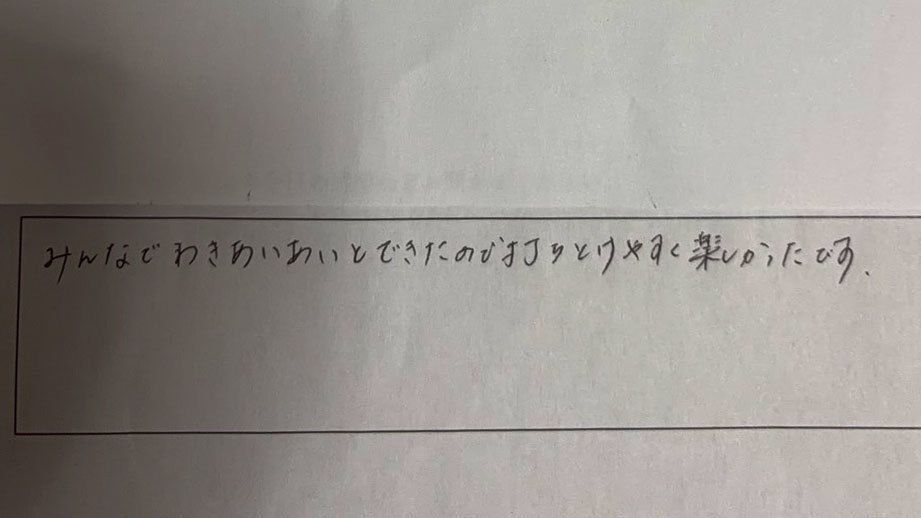 みんなでわきあいあいとできたので打ちとけやすく楽しかったです.